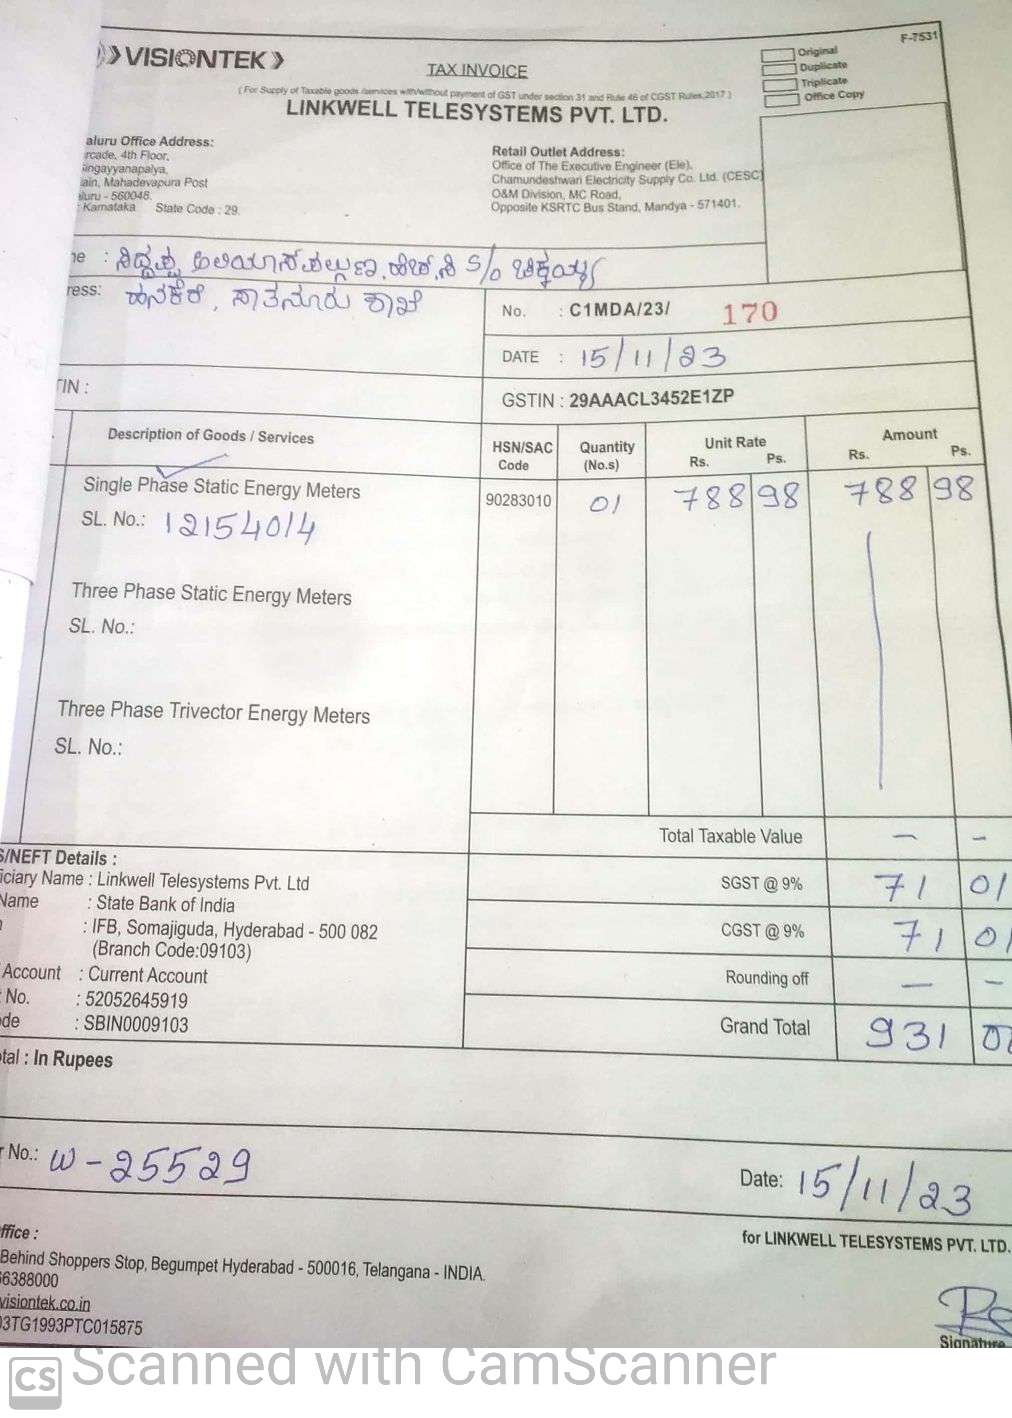 VISIONTEK
F-7531
TAX INVOICE
Original
Duplicate
Triplicate
Office Copy
( For Supply of Taxable goods /services with/without payment of GST under section 31 and Rule 46 of CGST Rules,2017 )
LINKWELL TELESYSTEMS PVT. LTD.
aluru Office Address:
rcade, 4th Floor,
ingayyanapalya,
ain, Mahadevapura Post
aluru - 560048.
: Karnataka State Code : 29.
Retail Outlet Address:
Office of The Executive Engineer (Ele),
Chamundeshwari Electricity Supply Co. Ltd. (CESC)
O&M Division, MC Road,
Opposite KSRTC Bus Stand, Mandya - 571401.
me : S/o
ress: ಹನಕೆರೆ, ಸಾತನೂರು ಶಾಖೆ
No. : C1MDA/23/ 170
DATE : 15/11/23
TIN :
GSTIN : 29AAACL3452E1ZP
Description of Goods / Services
HSN/SAC Code
Quantity (No.s)
Unit Rate
Rs. Ps.
Amount
Rs. Ps.
Single Phase Static Energy Meters 90283010 01 788 98 788 98
SL. No.: 12154014
Three Phase Static Energy Meters
SL. No.:
Three Phase Trivector Energy Meters
SL. No.:
Total Taxable Value — -
S/NEFT Details :
iciary Name : Linkwell Telesystems Pvt. Ltd
Name : State Bank of India
: IFB, Somajiguda, Hyderabad - 500 082
(Branch Code:09103)
Account : Current Account
No. : 52052645919
ode : SBIN0009103
SGST @ 9% 71 01
CGST @ 9% 71 01
Rounding off — -
Grand Total 931
otal : In Rupees
r No.: W-25529
Date: 15/11/23
for LINKWELL TELESYSTEMS PVT. LTD.
ffice :
Behind Shoppers Stop, Begumpet Hyderabad - 500016, Telangana - INDIA.
66388000
visiontek.co.in
03TG1993PTC015875
Signature
CS Scanned with CamScanner